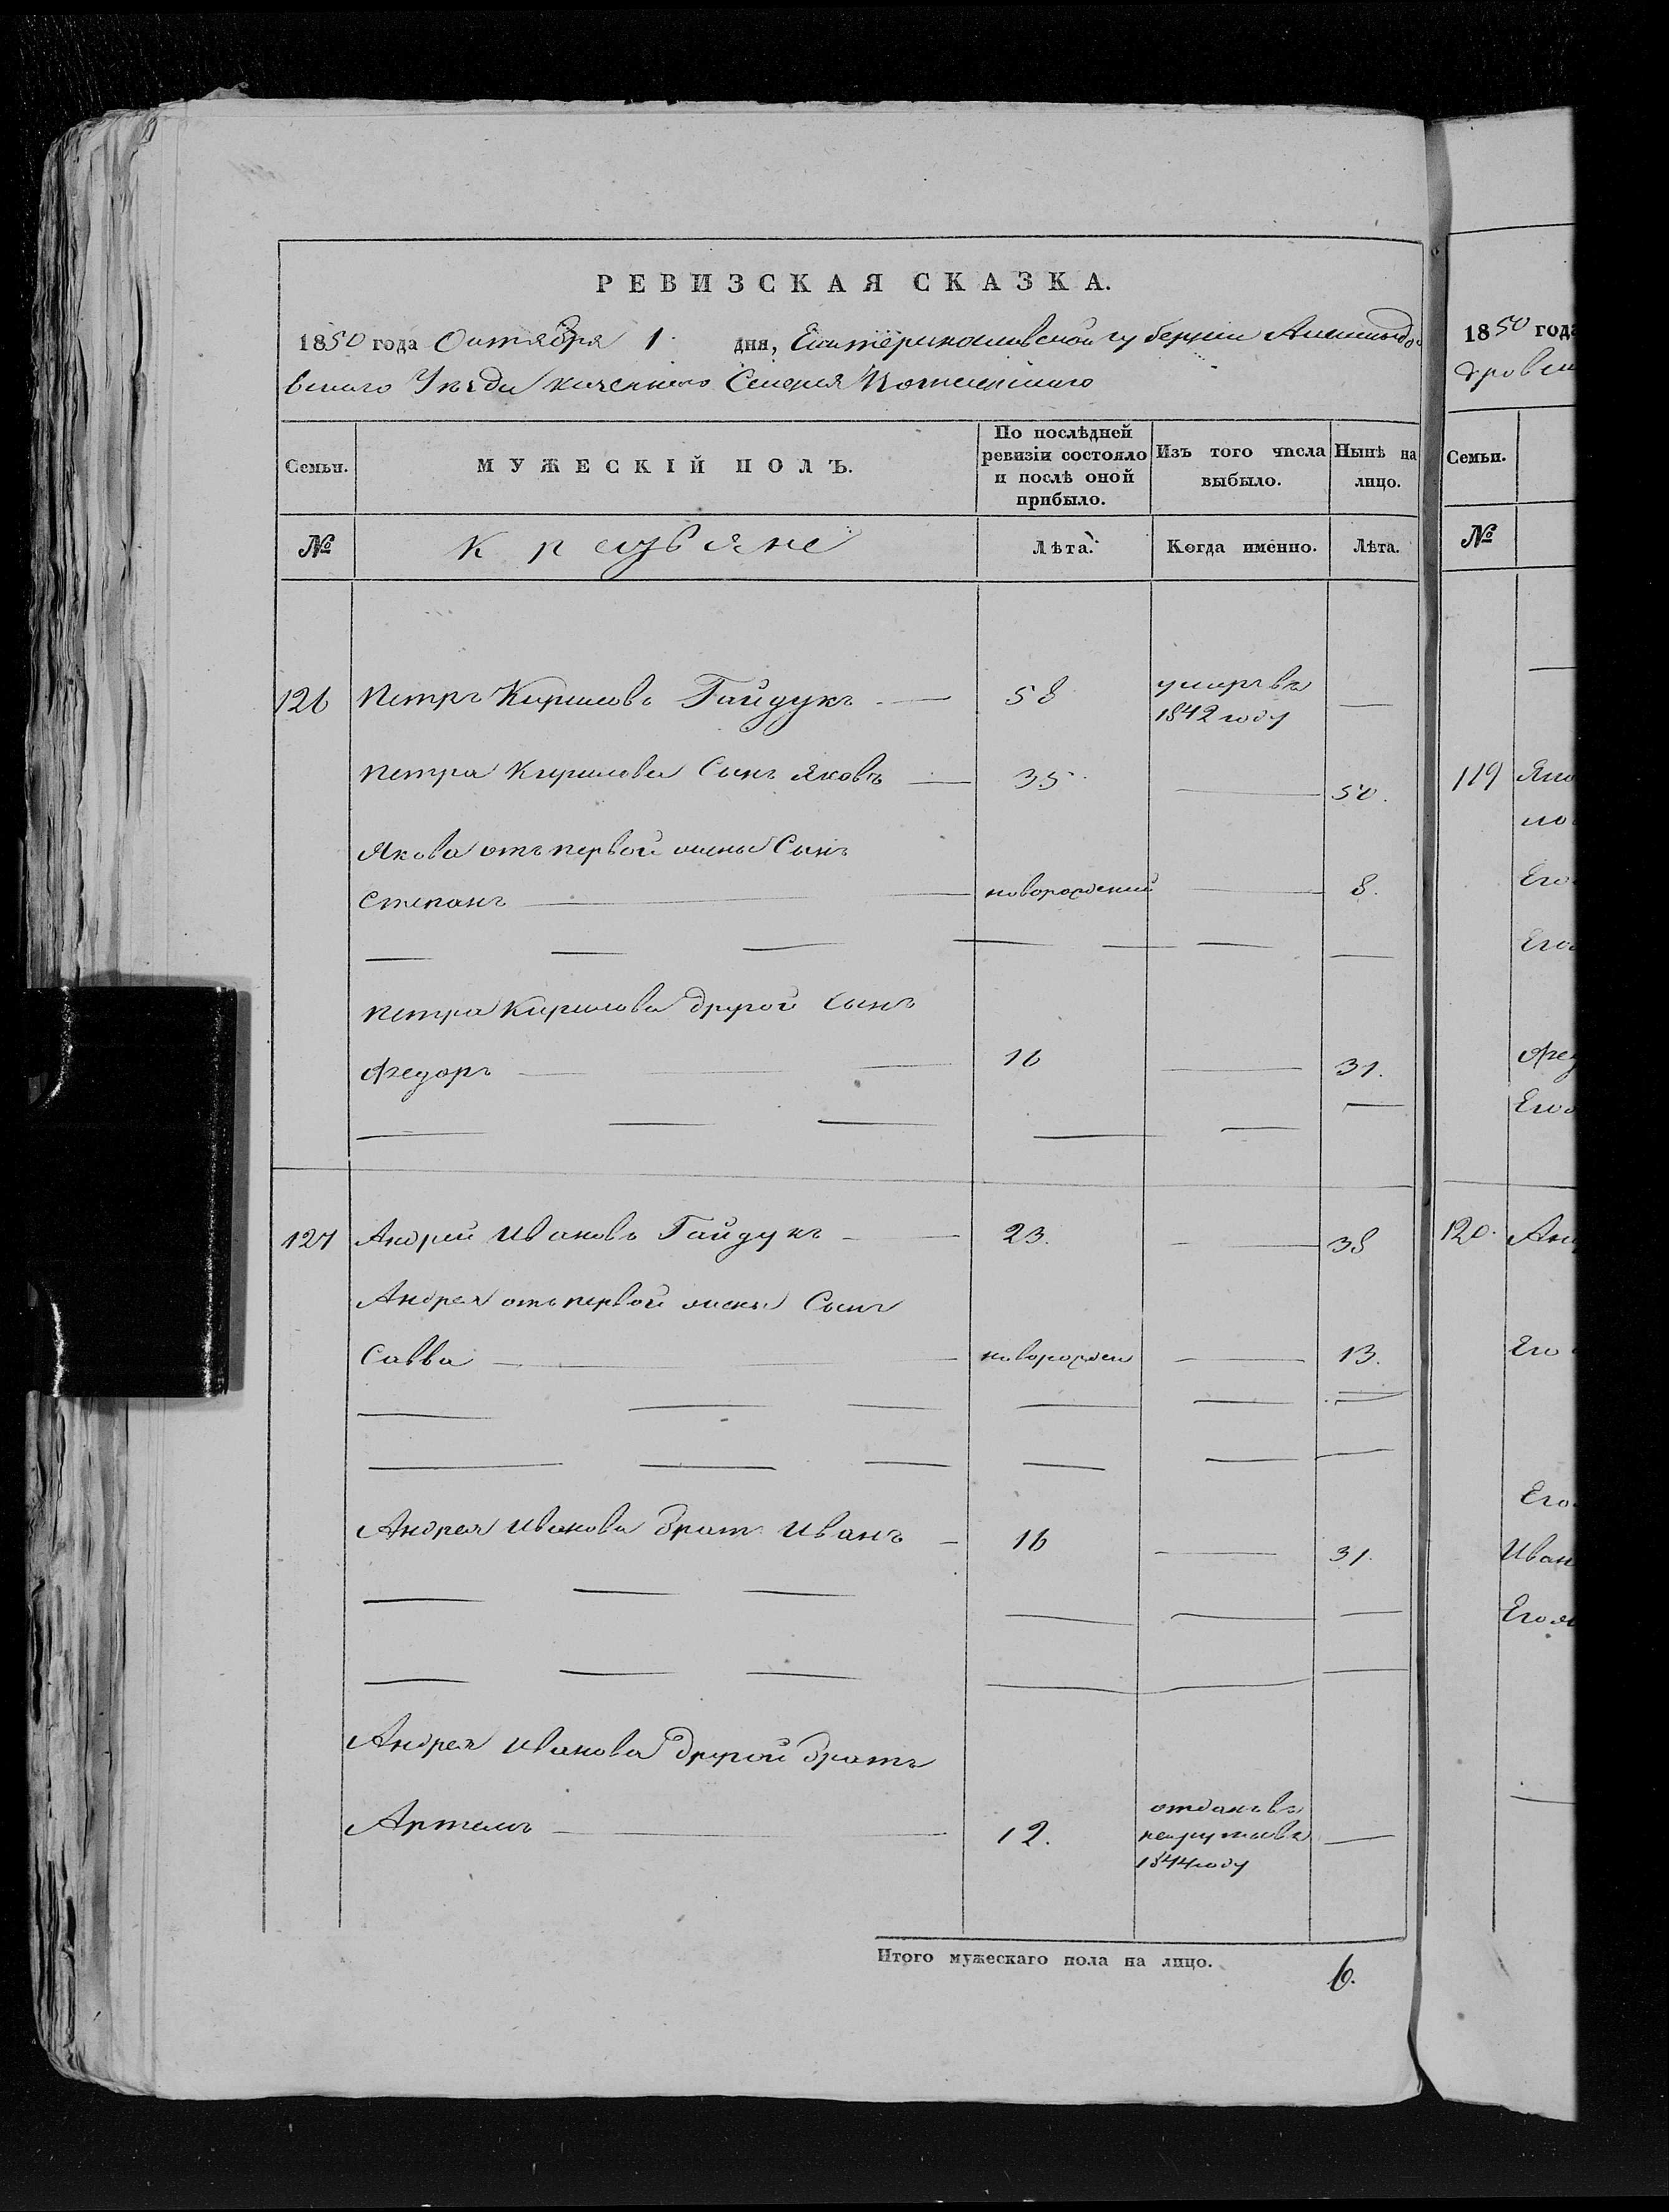 РЕВИЗСКАЯ СКАЗКА.
1850 года Октября 1. дня, Екатеринославской губерніи Александро-
вскаго Уѣзда казеннаго Селенія
Семьи. МУЖЕСКІЙ ПОЛЪ. По послѣдней ревизіи состояло и послѣ оной прибыло. Изъ того числа выбыло. Нынѣ на лицо.
№ Лѣта. Когда именно. Лѣта.
126 Петръ Кириловъ Гайдукъ — 58 умеръ въ 1842 году —
Петра Кирилова Сынъ Яковъ — 35 — 50.
Якова отъ первой жены Сынъ
Степанъ — новорожденный — 8.
Петра Кирилова другой Сынъ
Федоръ — 16 — 31.
127 Андрей Ивановъ Гайдукъ — 23. — 38
Андрея отъ первой жены Сынъ
Савва — новорожден — 13.
Андрея Иванова братъ Иванъ — 16 — 31.
Андрея Иванова другой братъ
Артемъ — 12. отданъ въ рекруты въ 1844 году —
Итого мужескаго пола на лицо. 6.
1850 года
дровск
Семьи.
№
119 Яко
Его
Его
Фед
Его
120. Анд
Его
Его
Иван
Его